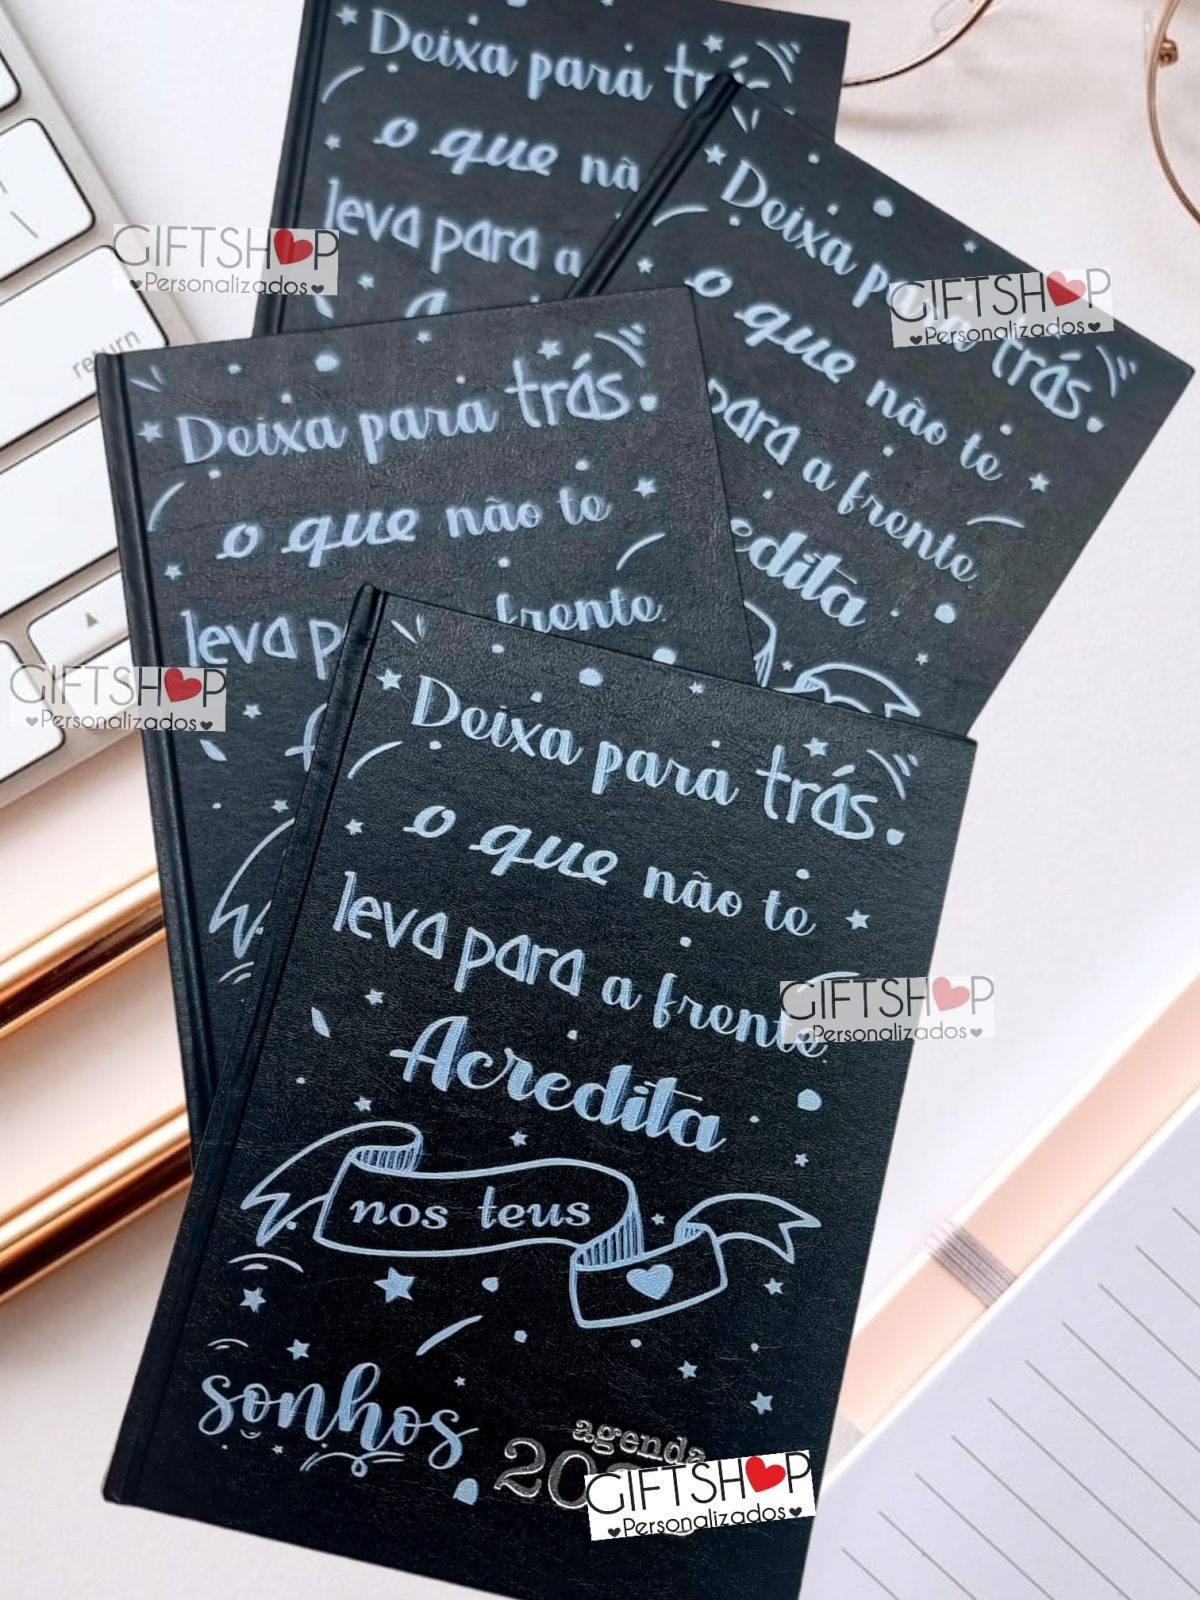 Deixa para
o que
leva para a
Deixa para trás.
o que não te
para a frente
GIFTSHOP
Personalizados
GIFTSHOP
Personalizados
return
Deixa para trás.
o que não te
leva
frente
GIFTSHOP
Personalizados
Deixa para trás.
o que não te
leva para a frente.
Acredita
nos teus
sonhos
GIFTSHOP
Personalizados
agenda
GIFTSHOP
Personalizados